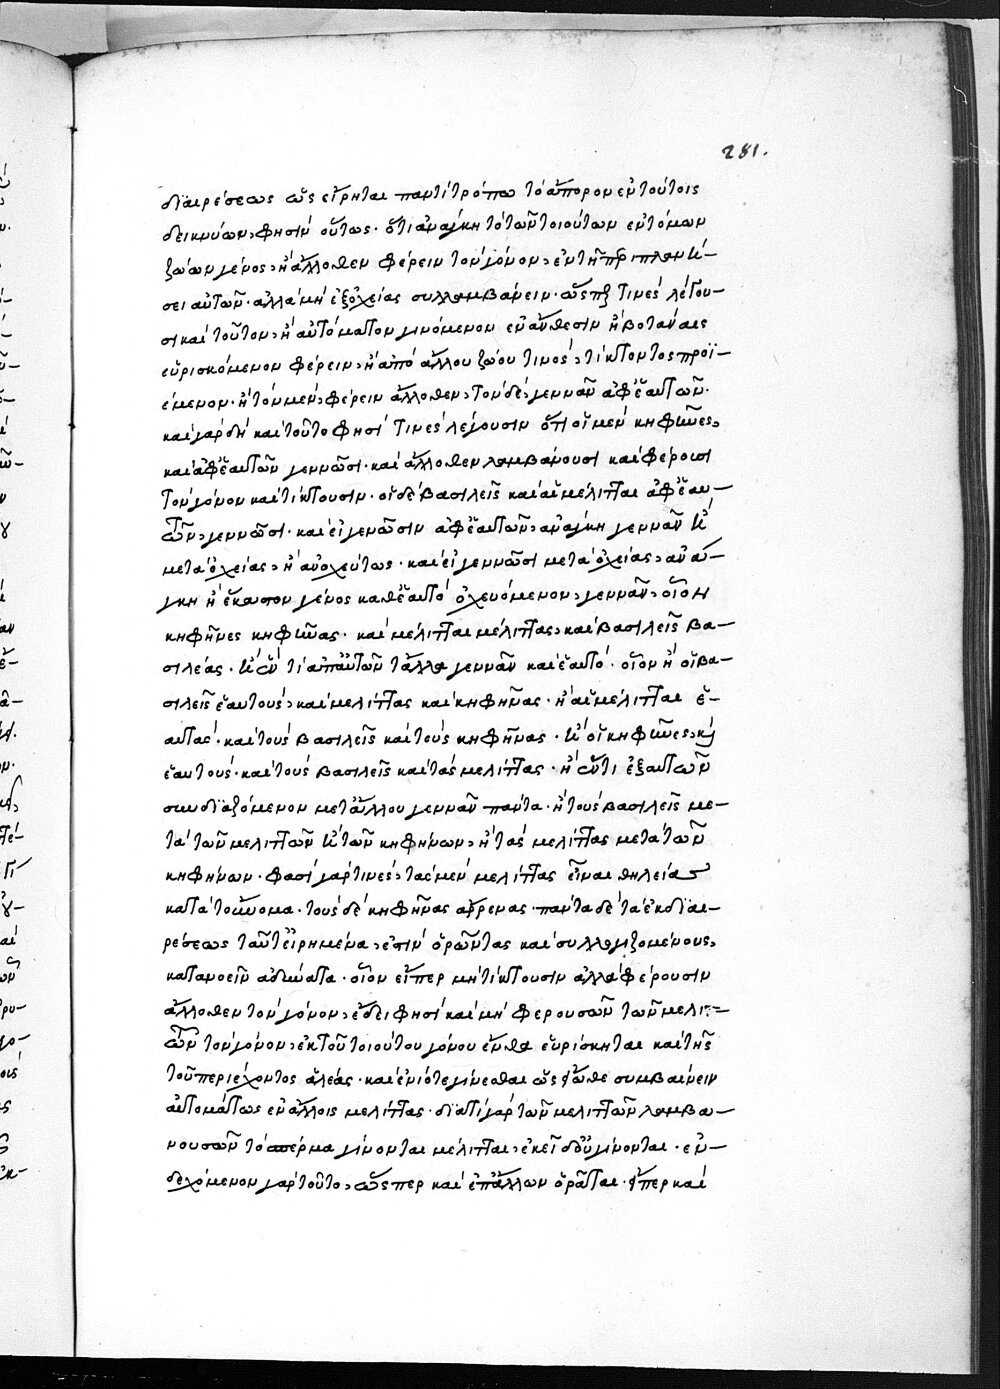 281.
διαιρέσεως ὡς εἴρηται παντὶ τρόπω τὸ ἄπορον ἐν τούτοις
δεικνύων, φησὶν οὕτως· ὅτι ἀνάγκη τὸ τῶν τοιούτων ἐντόμων
ζώων γένος, ἢ ἄλλοθεν φέρειν τὸν γόνον, ἐν τῆ
σει αὐτῶν· ἀλλὰ μὴ ἐξ ὀχείας συλλαμβάνειν· ὥσπερ τινὲς λέγου-
σι καὶ τοῦτον, ἢ αὐτόματον γινόμενον ἐν ἄνθεσιν ἢ βοτάναις
εὑρισκόμενον φέρειν, ἢ ἀπὸ ἄλλου ζώου τινὸς, τίκτοντος προϊ-
έμενον· ἢ τὸν μὲν, φέρειν ἄλλοθεν, τὸν δὲ, γεννᾶν ἀφ' ἑαυτῶν·
καὶ γὰρ δὴ καὶ τοῦτο φησί τινὲς λέγουσιν ὅτι οἱ μὲν κηφῆνες,
καὶ ἀφ' ἑαυτῶν γεννῶσι· καὶ ἄλλοθεν λαμβάνουσι καὶ φέρουσι
τὸν γόνον καὶ τίκτουσιν· οἱ δὲ βασιλεῖς καὶ αἱ μέλιτται ἀφ' ἑαυ-
τῶν, γεννῶσι· καὶ εἰ γεννῶσιν ἀφ' ἑαυτῶν, ἀνάγκη γεννᾶν ἢ
μετὰ ὀχείας, ἢ ἀνοχεύτως· καὶ εἰ γεννῶσι μετὰ ὀχείας, ἀνά-
γκη ἢ ἕκαστον γένος καθ' ἑαυτὸ ὀχευόμενον, γεννᾶν, οἷον
κηφῆνες κηφῆνας· καὶ μέλιτται μελίττας, καὶ βασιλεῖς βα-
σιλέας· ἢ ἕν τι ἁπάντων τἄλλα γεννᾶν καὶ ἑαυτό· οἷον ἢ οἱ βα-
σιλεῖς ἑαυτοὺς, καὶ μελίττας καὶ κηφῆνας· ἢ αἱ μέλιτται ἑ-
αυτὰς· καὶ τοὺς βασιλεῖς καὶ τοὺς κηφῆνας· ἢ οἱ κηφῆνες, καὶ
ἑαυτοὺς· καὶ τοὺς βασιλεῖς καὶ τὰς μελίττας· ἢ ἕν τι ἐξ αὐτῶν
συνδιαζόμενον μετ' ἄλλου γεννᾶν πάντα· ἢ τοὺς βασιλεῖς με-
τὰ τῶν μελιττῶν ἢ τῶν κηφήνων, ἢ τὰς μελίττας μετὰ τῶν
κηφήνων· φασὶ γάρ τινὲς, τὰς μὲν μελίττας εἶναι θηλείας
κατὰ τοὔνομα· τοὺς δὲ κηφῆνας ἄρρενας· πάντα δὲ τὰ ἐκ διαι-
ρέσεως ταῦτ' εἰρημένα, ἐστὶν ὁρῶντας καὶ συλλογιζομένους,
κατανοεῖν ἀδύνατα· οἷον εἴπερ μὴ τίκτουσιν ἀλλὰ φέρουσιν
ἄλλοθεν τὸν γόνον, ἔδει φησὶ καὶ μὴ φερουσῶν τῶν μελιτ-
τῶν τὸν γόνον, ἐκ τοῦ τοιούτου γόνου ἔνθα εὑρίσκηται καὶ τῆς
τοῦ περιέχοντος ἀλέας· καὶ ἐνίοτε γίνεσθαι ὡς εἴωθε συμβαίνειν
αὐτομάτως ἐν ἄλλοις μελίττας· διατί γὰρ τῶν μελιττῶν λαμβα-
νουσῶν τὸ σπέρμα γίνονται μέλιτται, ἐκεῖ δ' οὐ γίνονται· ἐν-
δεχόμενον γὰρ τοῦτο, ὥσπερ καὶ ἐπ' ἄλλων ὁρᾶται· εἴπερ καὶ